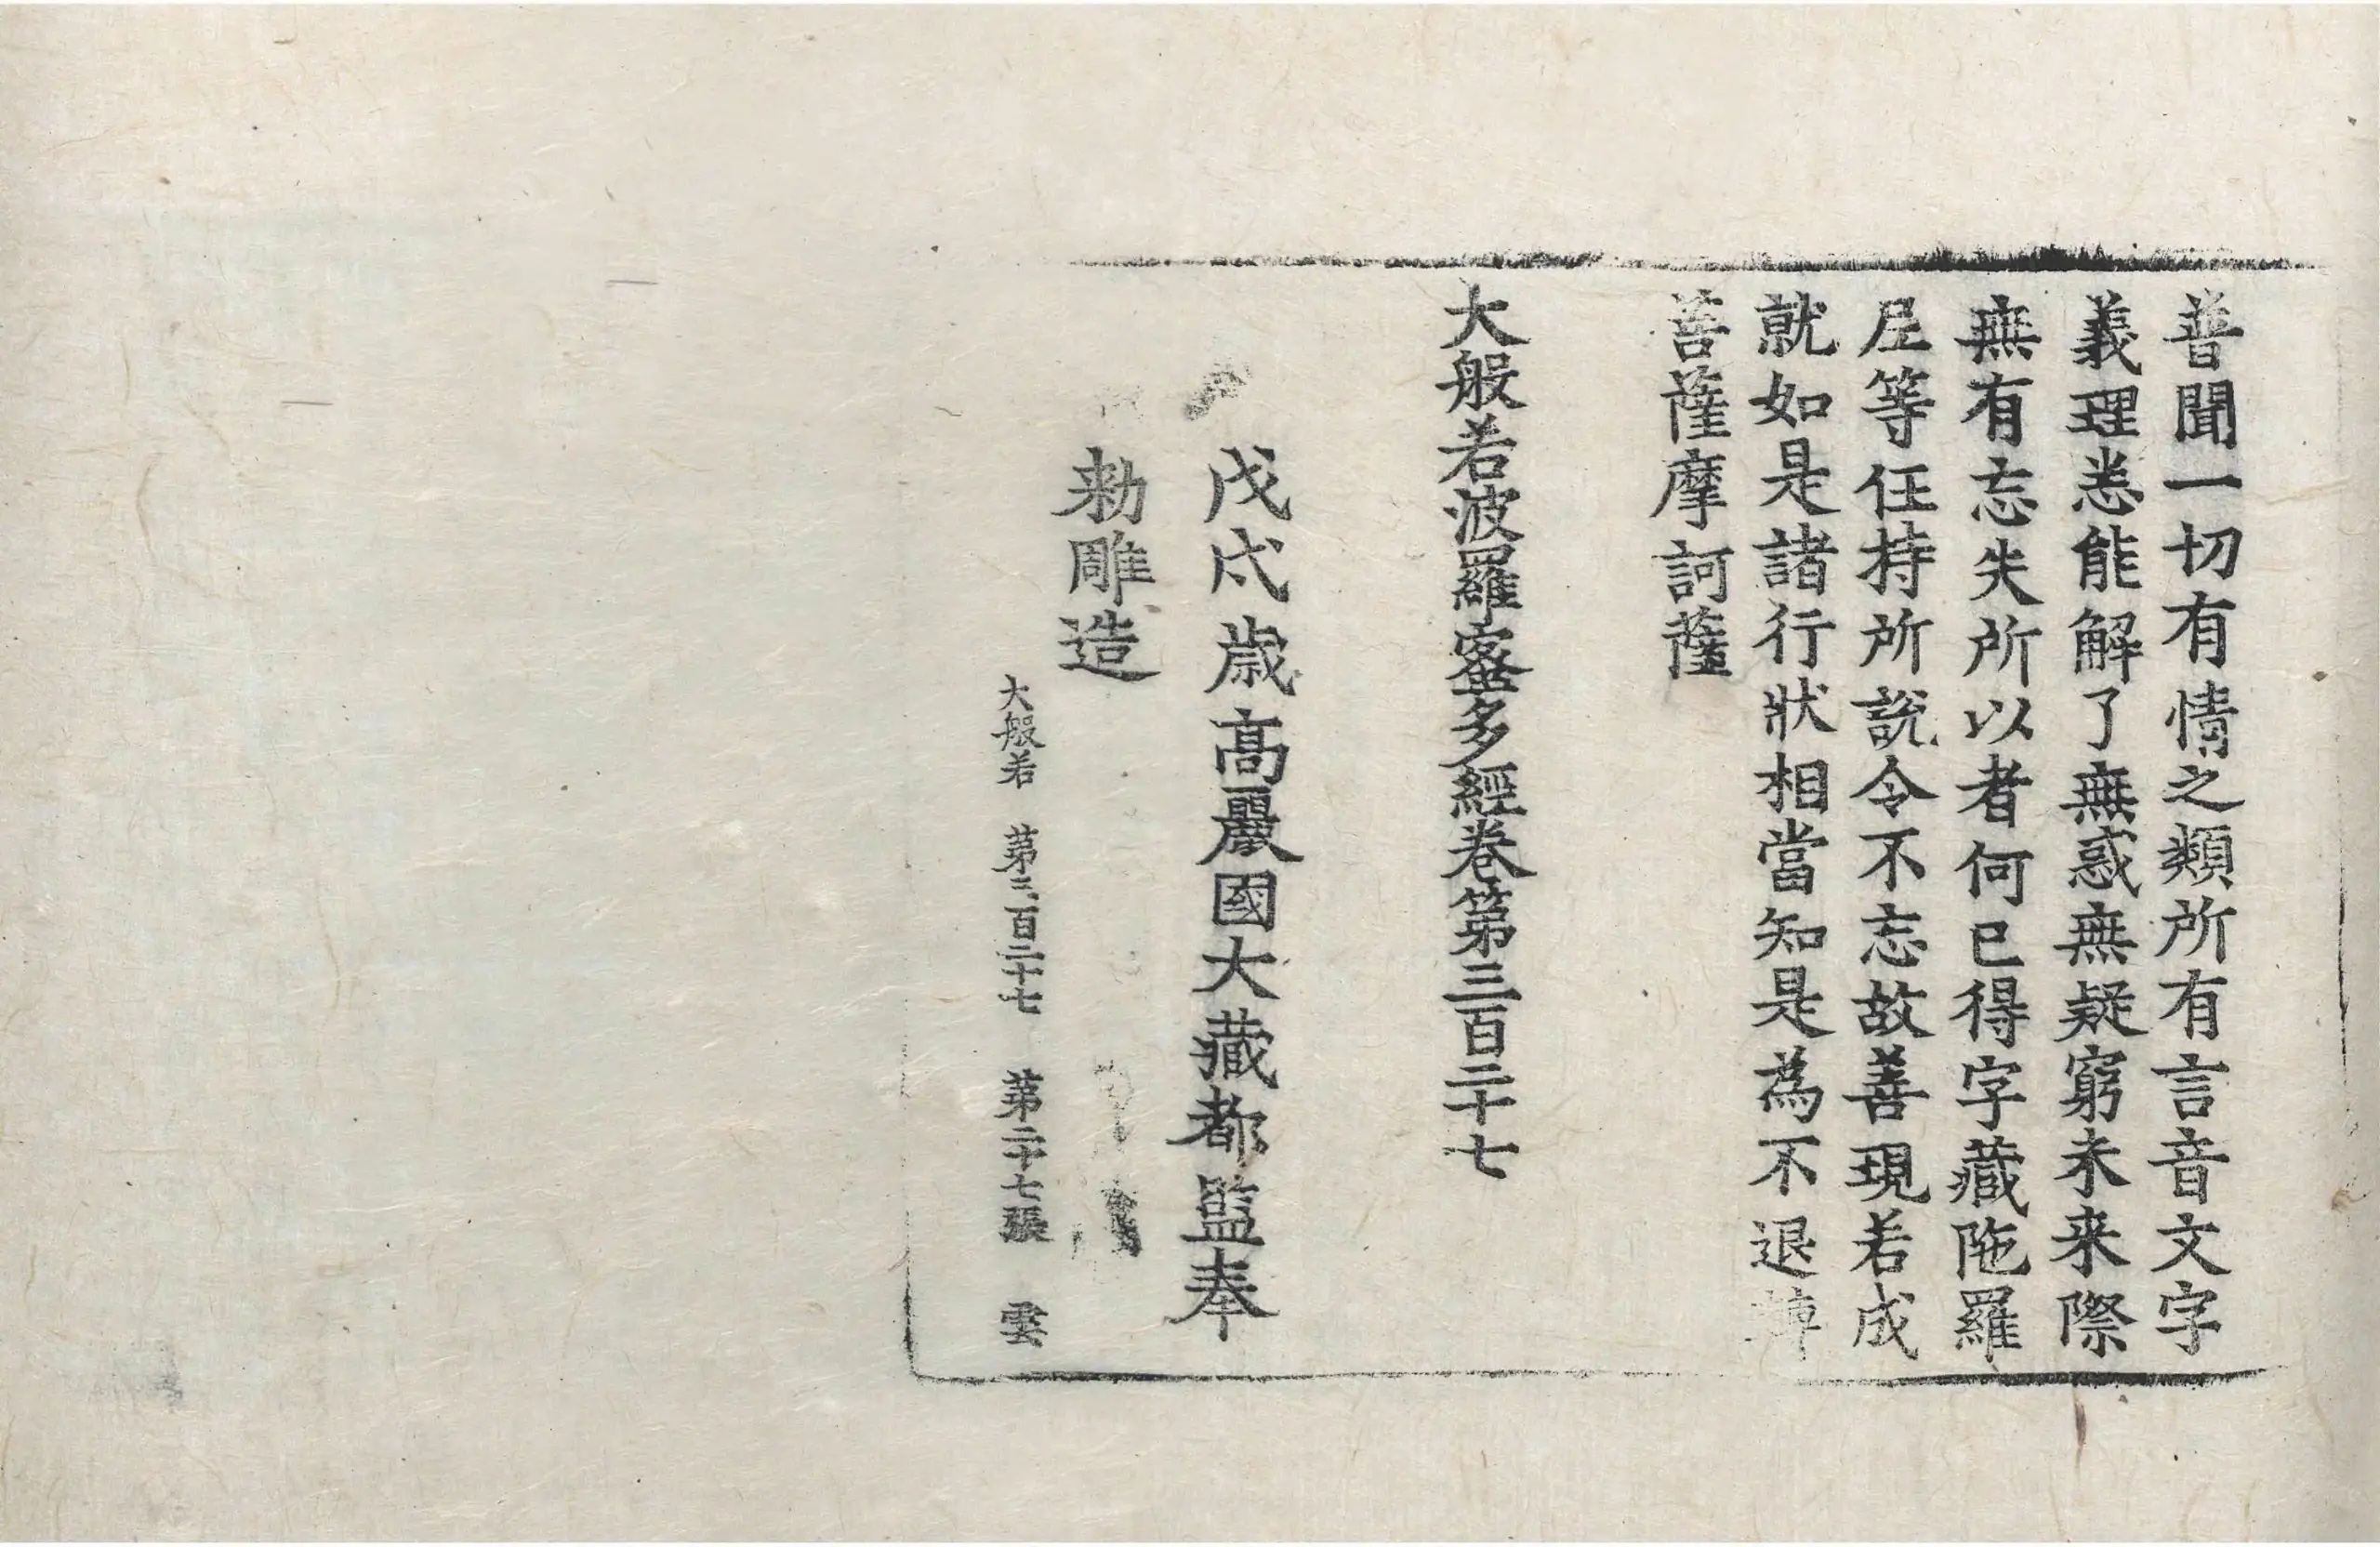 普聞一切有情之類所有言音文字
義理悉能解了無惑無疑窮未来際
無有忘失所以者何已得字藏陁羅
尼等任持所說令不忘故善現若成
就如是諸行狀相當知是為不退轉
菩薩摩訶薩
大般若波羅蜜多經卷第三百二十七
戊戌歲高麗國大藏都監奉
勅雕造
大般若 第三百二十七 第二十七張 雲